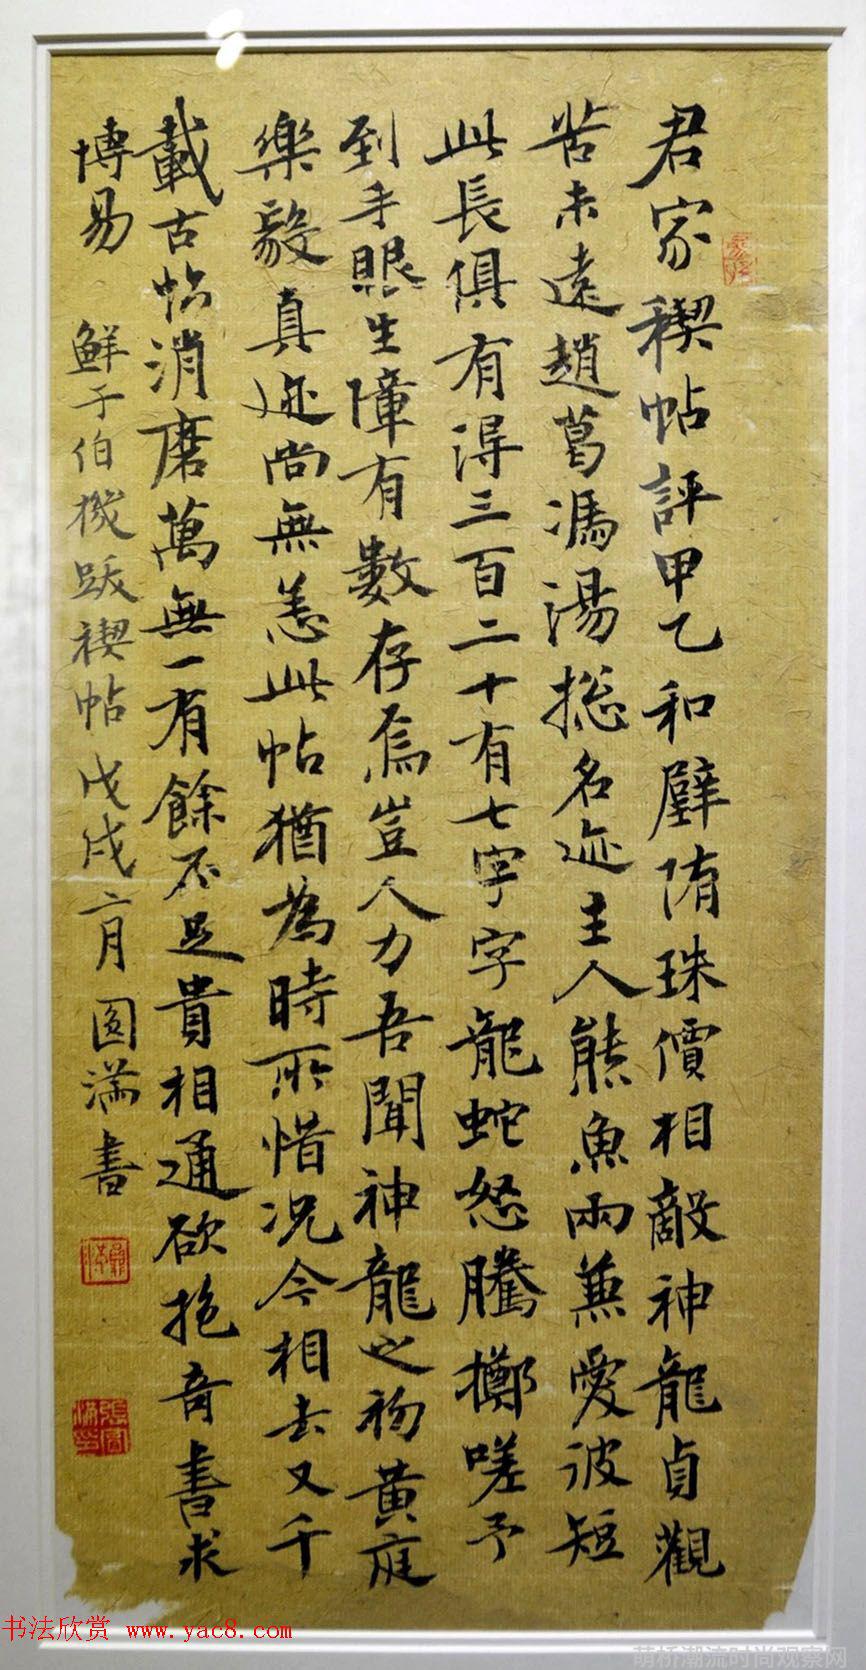 君家稧帖評甲乙和璧隋珠價相敵神龍貞觀
苦未遠趙葛馮湯揔名迹主人熊魚兩兼愛彼短
此長俱有得三百二十有七字字龍蛇怒騰擲嗟予
到手眼生障有數存焉豈人力吾聞神龍之初黃庭
樂毅真迹尚無恙此帖猶為時所惜況今相去又千
載古帖消磨萬無一有餘不足貴相通欲抱奇書求
博易 鮮于伯機跋禊帖戊戌六月圓滿書
书法欣赏 www.yac8.com
萌桥潮流时尚观察网